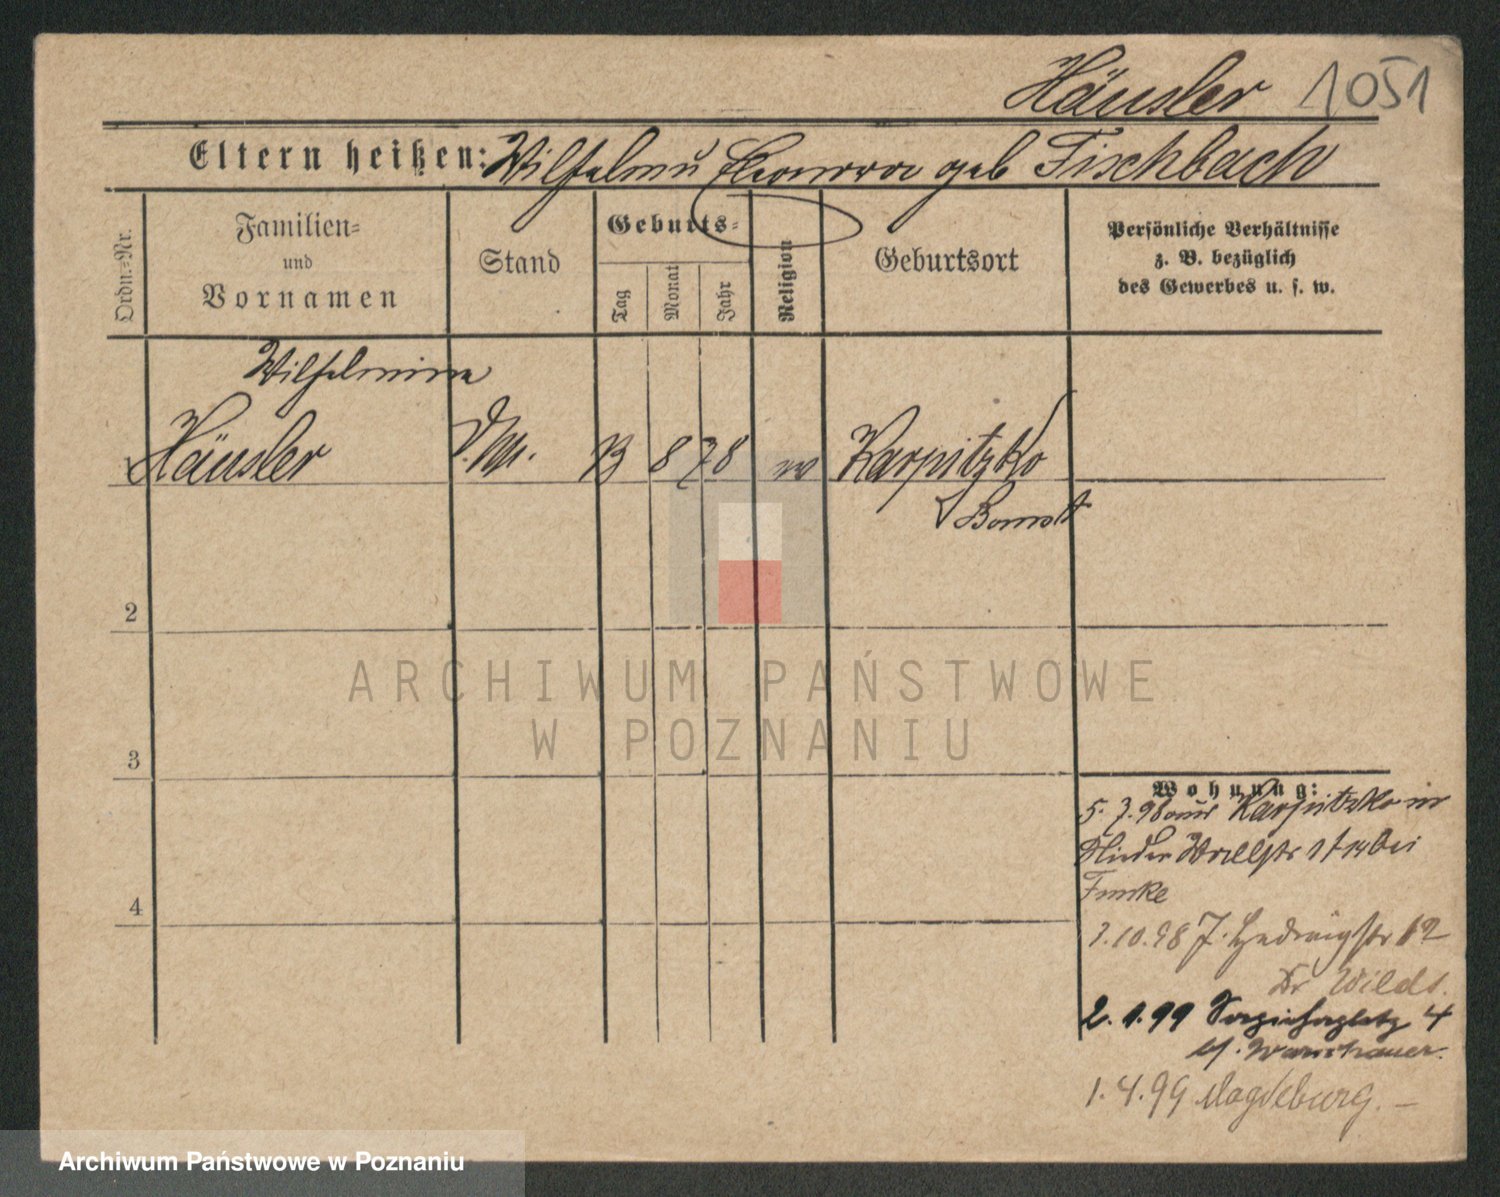 Häusler 1051
Eltern heißen: Wilhelm u Eleonore geb Fischbach
Ordn.=Nr.
Familien=
und
Vornamen
Stand
Geburts=
Tag
Monat
Jahr
Religion
Geburtsort
Persönliche Verhältnisse
z. B. bezüglich
des Gewerbes u. s. w.
Wilhelmine
1 Häusler D.M. 13 8 78 Karpitzko
Bomst
2
3
4
Wohnung:
5. 7. 98 aus Karpitzko in
Wallstr bei
Funke
1.10.98 J. Hedwigstr 12
Dr Wilds.
2. 1. 99 Sapiehaplatz 4
bf. Warschauer.
1. 4. 99 Magdeburg. –
ARCHIWUM PAŃSTWOWE
W POZNANIU
Archiwum Państwowe w Poznaniu